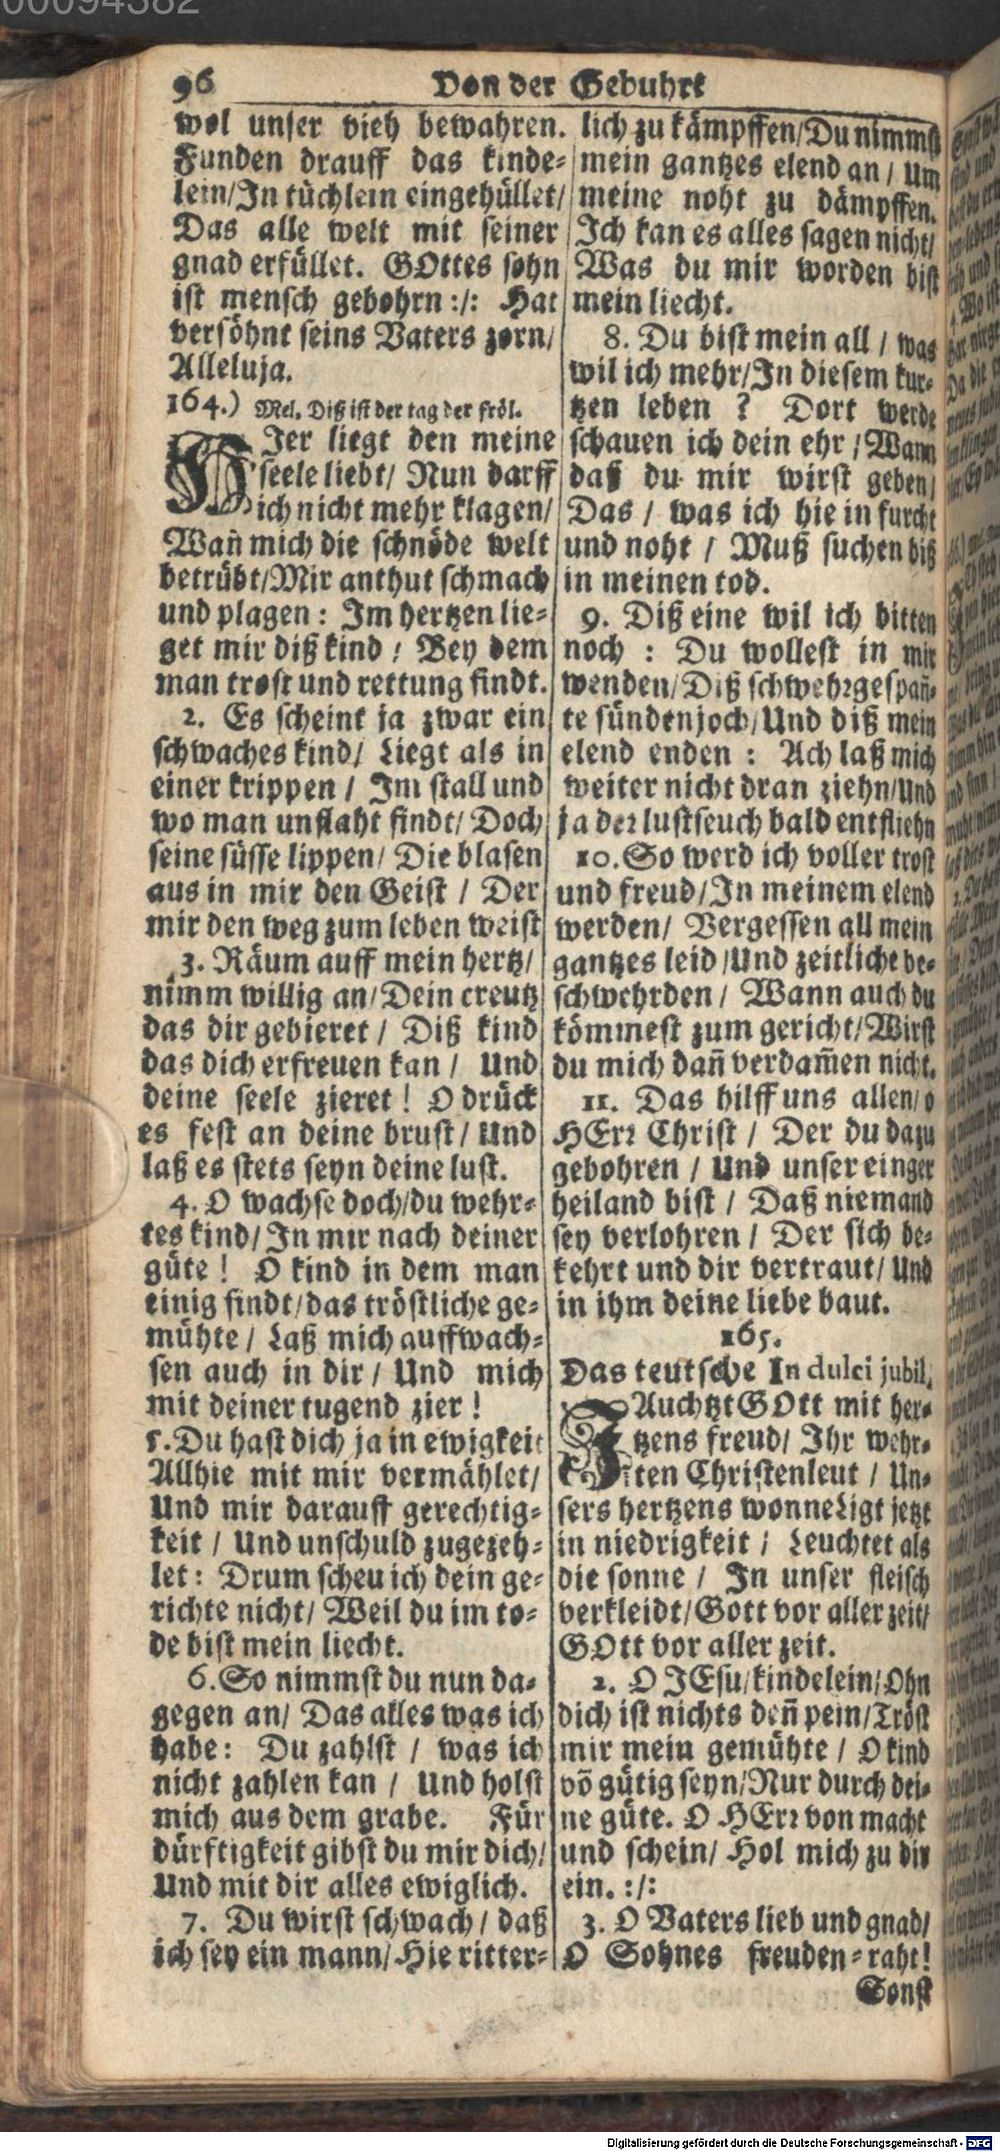 00094382
96 Von der Gebuhrt
wol unser vieh bewahren.
Funden drauff das kinde-
lein/In tüchlein eingehüllet/
Das alle welt mit seiner
gnad erfüllet. GOttes sohn
ist mensch gebohrn :/: Hat
versöhnt seins Vaters zorn/
Alleluja.
164.) Mel. Diß ist der tag der fröl.
HIer liegt den meine
seele liebt/ Nun darff
ich nicht mehr klagen/
Wañ mich die schnöde welt
betrübt/Mir anthut schmach
und plagen : Im hertzen lie-
get mir diß kind / Bey dem
man trost und rettung findt.
2. Es scheint ja zwar ein
schwaches kind/ Liegt als in
einer krippen / Im stall und
wo man unflaht findt/ Doch
seine süsse lippen/ Die blasen
aus in mir den Geist / Der
mir den weg zum leben weist
3. Räum auff mein hertz/
nimm willig an/Dein creutz
das dir gebieret / Diß kind
das dich erfreuen kan / Und
deine seele zieret ! O drück
es fest an deine brust/ Und
laß es stets seyn deine lust.
4. O wachse doch/du wehr-
tes kind/In mir nach deiner
güte ! O kind in dem man
einig findt/das tröstliche ge-
mühte / Laß mich auffwach-
sen auch in dir / Und mich
mit deiner tugend zier !
5. Du hast dich ja in ewigkeit
Allhie mit mir vermählet/
Und mir darauff gerechtig-
keit / Und unschuld zugezeh-
let : Drum scheu ich dein ge-
richte nicht/ Weil du im to-
de bist mein liecht.
6. So nimmst du nun da-
gegen an/ Das alles was ich
habe : Du zahlst / was ich
nicht zahlen kan / Und holst
mich aus dem grabe. Für
dürftigkeit gibst du mir dich/
Und mit dir alles ewiglich.
7. Du wirst schwach / daß
ich sey ein mann/Hie ritter-
lich zu kämpffen/Du nimmst
mein gantzes elend an / Um
meine noht zu dämpffen.
Ich kan es alles sagen nicht/
Was du mir worden bist
mein liecht.
8. Du bist mein all / was
wil ich mehr/In diesem kur-
tzen leben ? Dort werde
schauen ich dein ehr / Wann
daß du mir wirst geben/
Das / was ich hie in furcht
und noht / Muß suchen biß
in meinen tod.
9. Diß eine wil ich bitten
noch : Du wollest in mir
wenden/Diß schwehrgespañ-
te sündenjoch/Und diß mein
elend enden : Ach laß mich
weiter nicht dran ziehn/Und
ja der lustseuch bald entfliehn
10. So werd ich voller trost
und freud/In meinem elend
werden/ Vergessen all mein
gantzes leid /Und zeitliche be-
schwehrden / Wann auch du
kömmest zum gericht/Wirst
du mich dañ verdam̃en nicht.
11. Das hilff uns allen/o
HErr Christ / Der du dazu
gebohren / Und unser einger
heiland bist / Daß niemand
sey verlohren / Der sich be-
kehrt und dir vertraut/ Und
in ihm deine liebe baut.
165.
Das teutsche In dulci jubil.
JAuchtzt GOtt mit her-
tzens freud/ Ihr wehr-
ten Christenleut / Un-
sers hertzens wonne Ligt jetzt
in niedrigkeit / Leuchtet als
die sonne / In unser fleisch
verkleidt/Gott vor aller zeit/
GOtt vor aller zeit.
2. O JEsu/kindelein/Ohn
dich ist nichts deñ pein/Tröst
mir mein gemühte / O kind
võ gütig seyn/Nur durch dei-
ne güte. O HErr von macht
und schein/ Hol mich zu dir
ein. :/:
3. O Vaters lieb und gnad/
O Sohnes freuden-raht!
Sonst
Digitalisierung gefördert durch die Deutsche Forschungsgemeinschaft - DFG